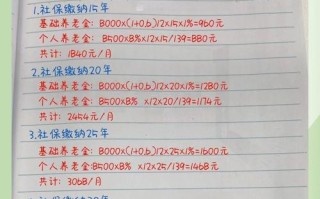 1.社保缴纳15年
基础养老金: 8000×(1+0.6)/2×15×1%=960元
个人养老金: 8500×8%×12×15/139=880元
共计: 1840元/月
2.社保缴纳20年
基础养老金: 8000×(1+0.6)/2×20×1%=1280元
个人养老金: 8500×8% ×12×20/139=1174元
共计: 2454元/月
3.社保缴纳25年
基础养老金: 8000×(1+0.6)/2×25×1%=1600元
个人养老金:8500×8% ×12×25/139=1468元
共计: 3068/月